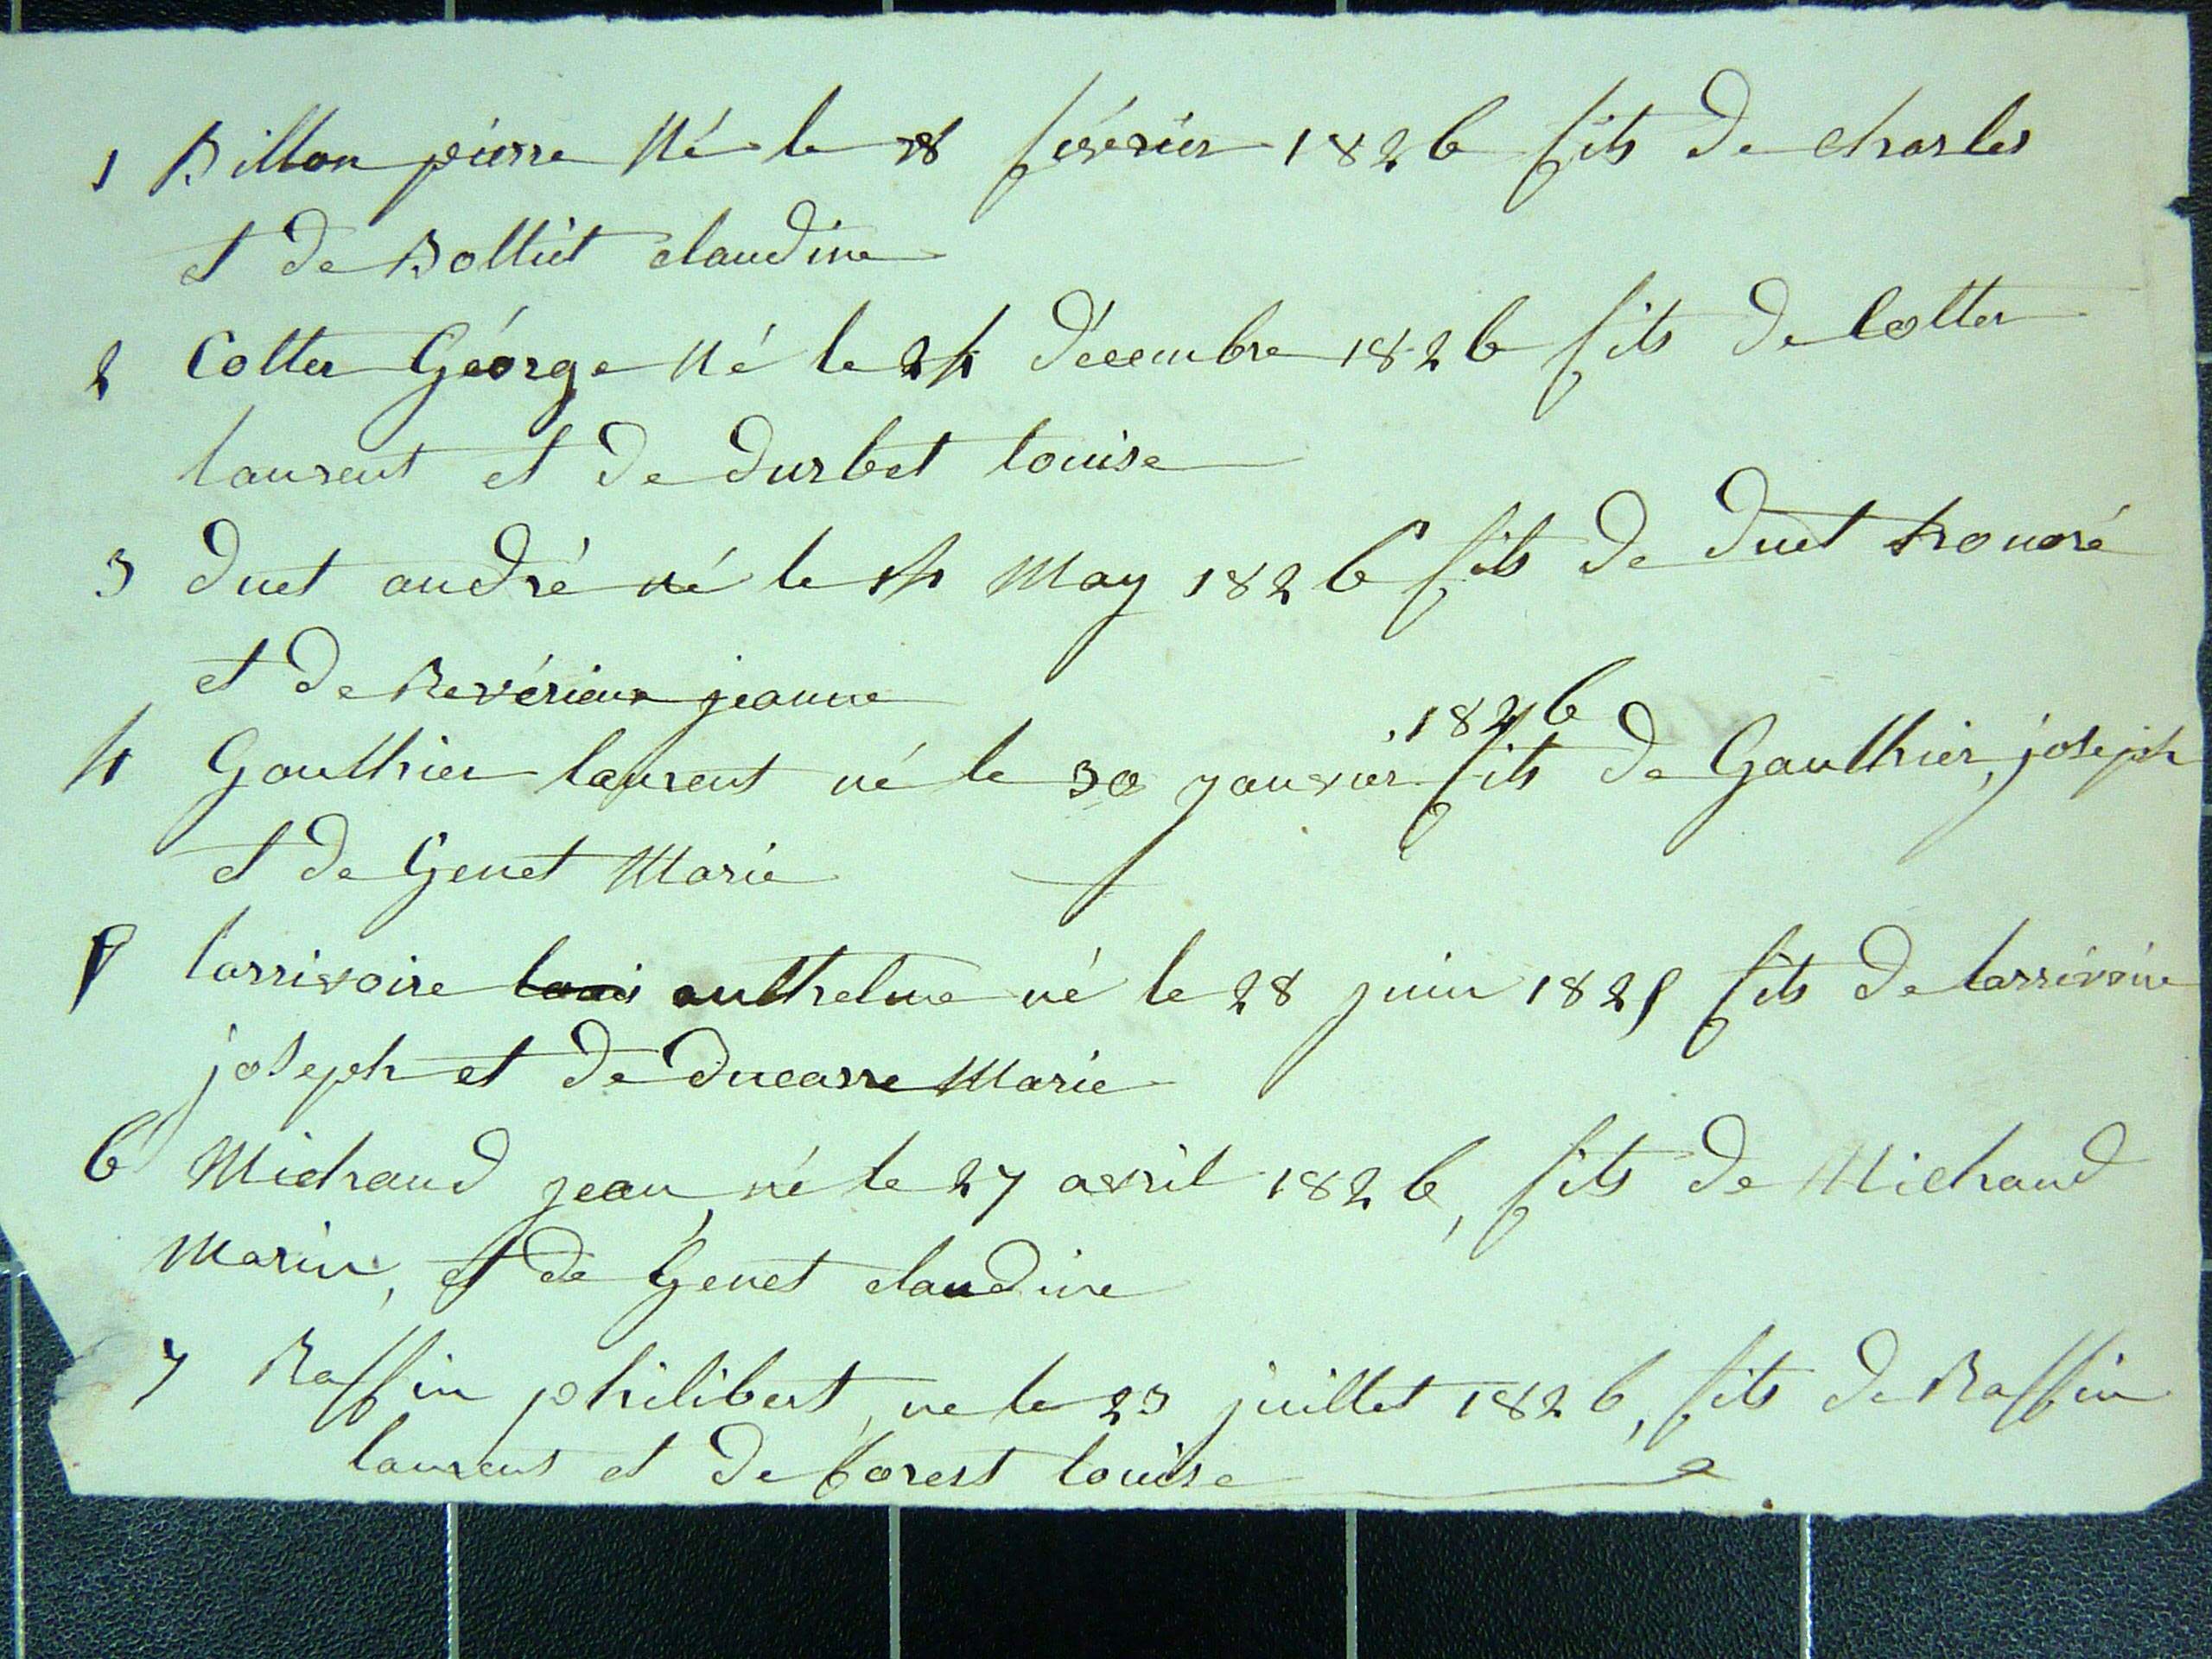 1 Billon pierre Né le 18 février 1826 fils de charles
et de Bolliet claudine
2 Cotter Géorge Né le 24 décembre 1826 fils de Cotter
laurent et de durbet louise
3 duet andré né le 14 May 1826 fils de duet honoré
et de Revérieux jeanne
1826
4 Gauthier laurent né le 30 janvier fils de Gauthier, joseph
et de Genet Marie
5 larrivoire louis anthelme né le 28 juin 1825 fils de larrivoire
joseph et de ducarre Marie
6 Michaud jean, né le 27 avril 1826, fils de Michaud
Marin, et de Genet claudine
7 Raffin philibert, ne le 23 juillet 1826, fils de Raffin
laurent et de forest louise